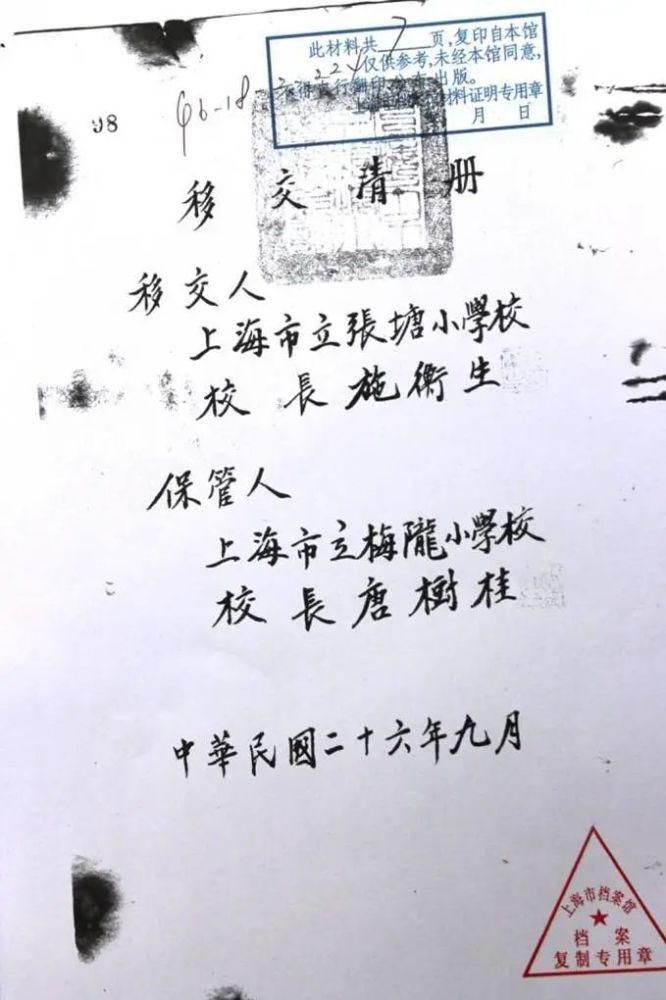 此材料共 7 页,复印自本馆
仅供参考,未经本馆同意,
不得自行翻印、公布出版。
材料证明专用章
月 日
98
移交清册
移交人
上海市立張塘小學校
校長施衛生
保管人
上海市立梅隴小學校
校長唐樹桂
中華民國二十六年九月
上海市档案馆
档案
复制专用章